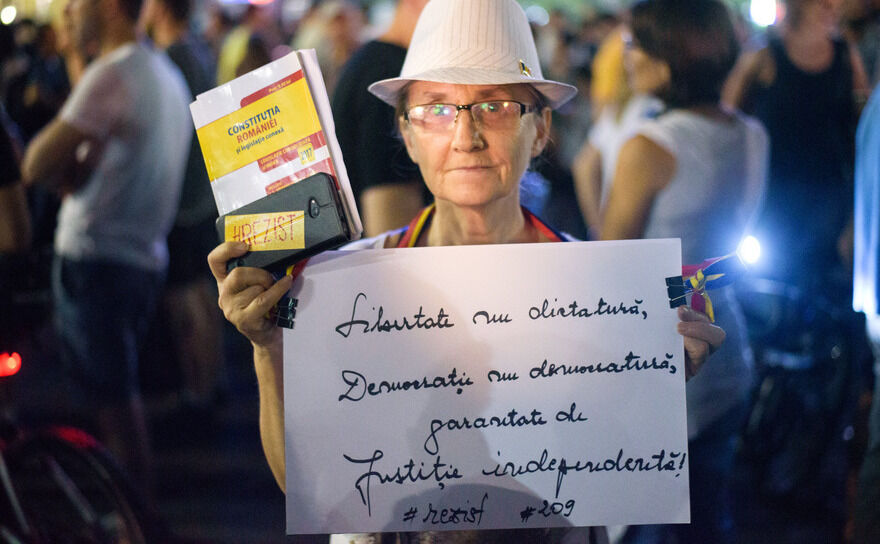 CONSTITUȚIA
ROMÂNIEI
și legislație conexă
2017
#REZIST
Libertate nu dictatură,
Democrație nu democratură,
garantate de
Justiție independentă!
#rezist #209